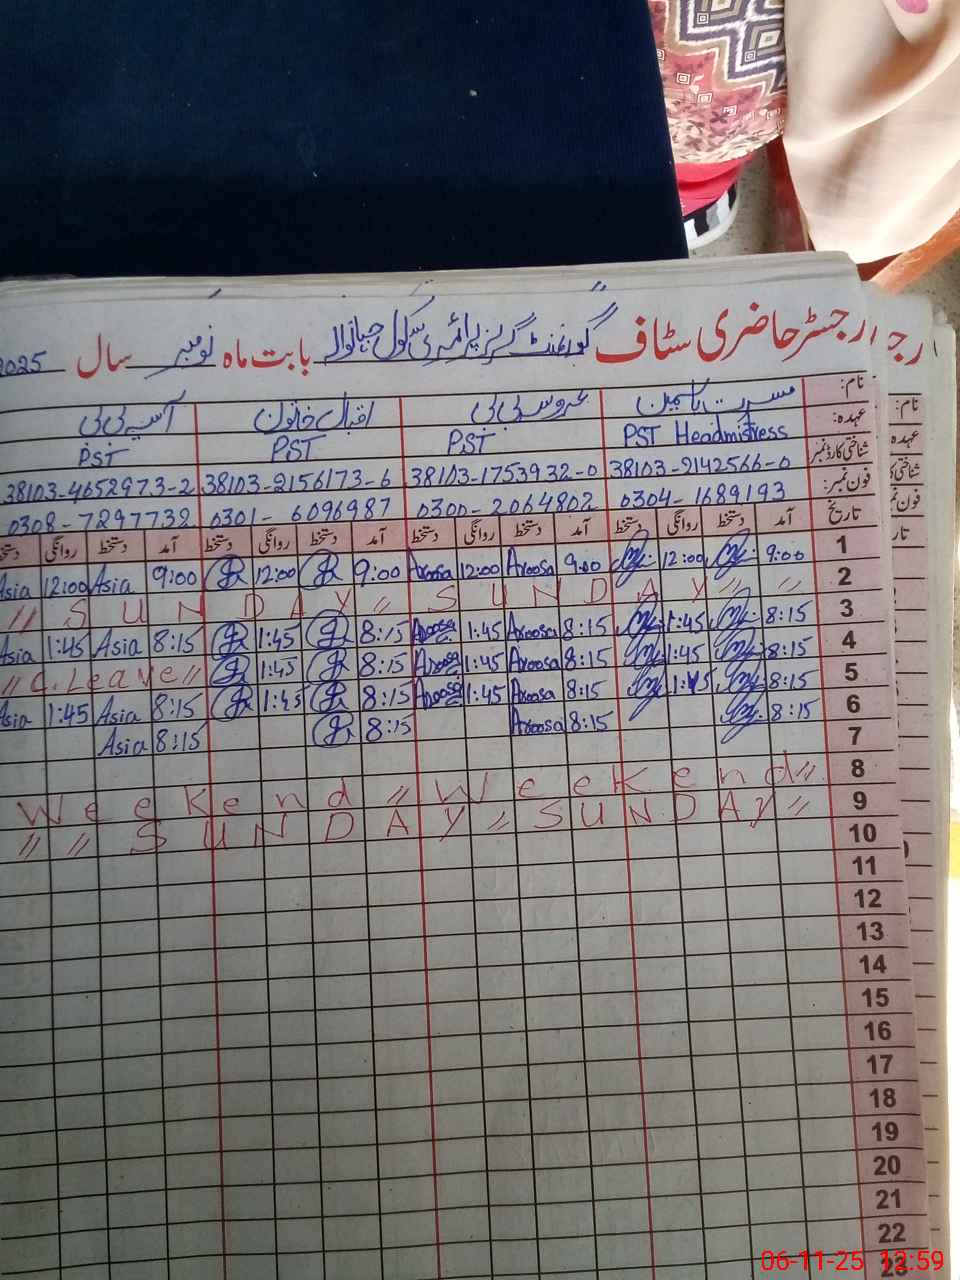 رجسٹر حاضری سٹاف گورنمنٹ گرلز پرائمری سکول بابت ماہ نومبر سال 2025
نام: مسرت یاسمین عروسہ بی بی اقبال خاتون آسیہ بی بی
عہدہ: PST Headmistress PST PST PST
شناختی کارڈ نمبر 38103-2142566-0 38103-1753932-0 38103-2156173-6 38103-4652973-2
فون نمبر: 0304-1689193 0300-2064802 0301-6096987 0308-7297732
تاریخ آمد دستخط روانگی دستخط آمد دستخط روانگی دستخط آمد دستخط روانگی دستخط آمد دستخط روانگی دستخط
1 9:00 12:00 9:00 Aroosa 12:00 Aroosa 9:00 12:00 9:00 Asia 12:00 Asia
2 // SUNDAY // SUNDAY // //
3 8:15 1:45 8:15 Aroosa 1:45 Aroosa 8:15 1:45 8:15 Asia 1:45 Asia
4 8:15 1:45 8:15 Aroosa 1:45 Aroosa 8:15 1:45 // C.Leave //
5 8:15 1:45 8:15 Aroosa 1:45 Aroosa 8:15 1:45 8:15 Asia 1:45 Asia
6 8:15 8:15 Aroosa 8:15 8:15 Asia
7
8 Weekend // Weekend //
9 // // SUNDAY // SUNDAY //
10
11
12
13
14
15
16
17
18
19
20
21
22
23
06-11-25 12:59